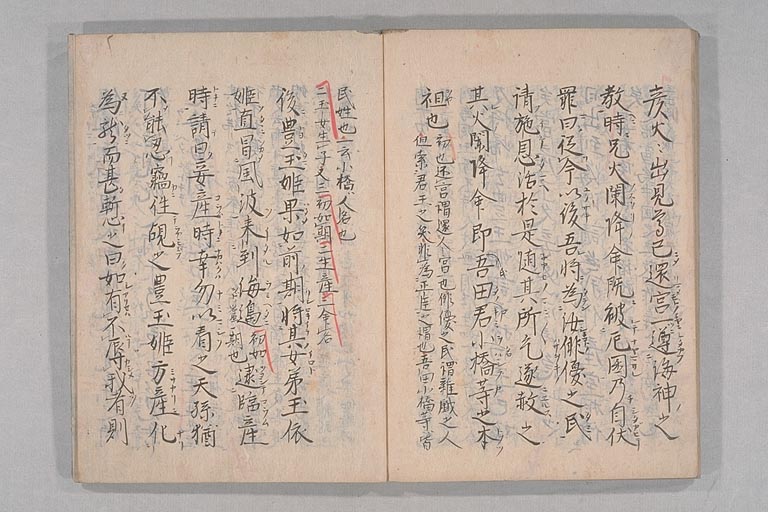 彦火々出見尊已還宮一遵海神之
教時兄火闌降命既被厄困乃自伏
罪曰從今以後吾將為汝俳優之民
請施恩活於是隨其所乞遂赦之
其火闌降命即吾田君小橋等之本
祖也
初也还宮謂還人宮也俳優之民謂雜戯之人
民姓也一云小橋人名也
後豊玉姫果如前期將其女弟玉依
姫直冒風波来到海邊
逮臨産
時請曰妾産時幸勿以看之天孫猶
不能忍竊往覘之豊玉姫方産化
為龍而甚慙之曰如有不辱我者則